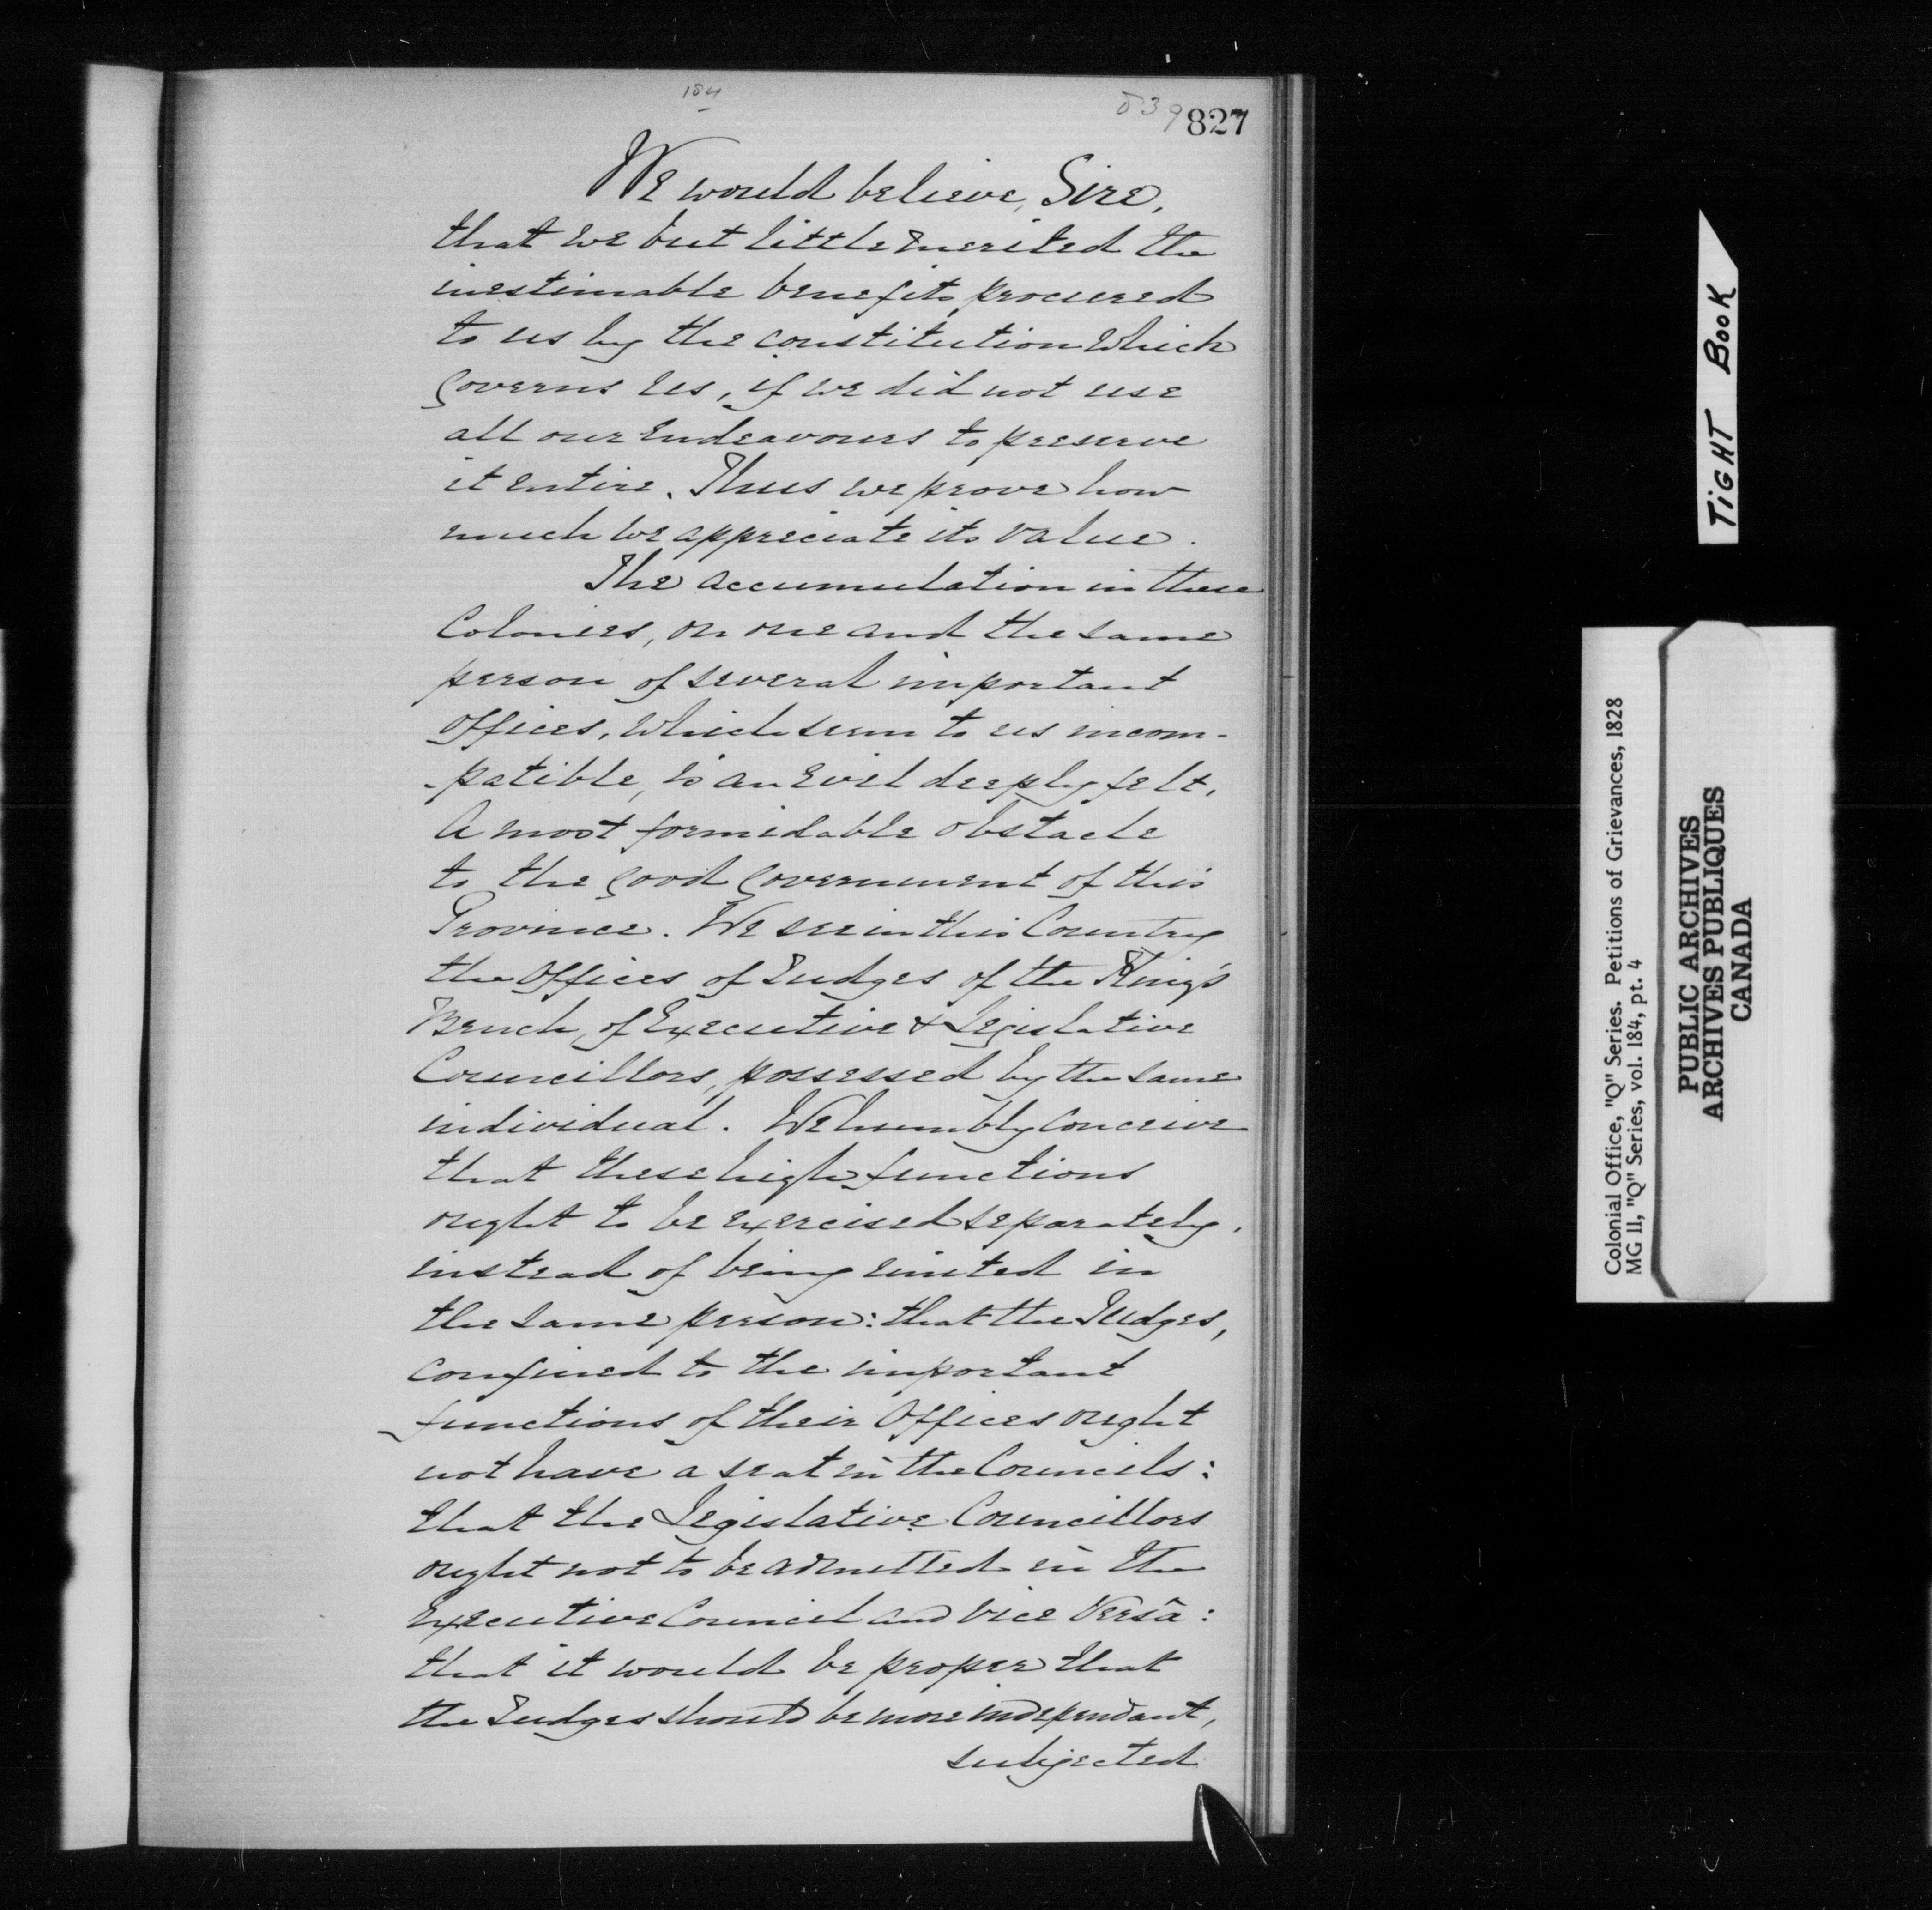 184
539
827
We would believe, Sire,
that we but little merited the
inestimable benefits procured
to us by the constitution which
Governs us, if we did not use
all our Endeavours to preserve
it entire. Thus we prove how
much we appreciate its value.
The accumulation in these
Colonies, on one and the same
person of several important
Offices, which seem to us incom-
-patible, is an Evil deeply felt,
A most formidable obstacle
to the good Government of this
Province. We see in this Country
the Offices of Judges of the King's
Bench, of Executive & Legislative
Councillors, possessed by the same
individual. We humbly conceive
that these high functions
ought to be exercised separately,
instead of being united in
the same person: that the Judges,
confined to the important
functions of their Offices ought
not have a seat in the Councils:
that the Legislative Councillors
ought not to be admitted in the
Executive Council and Vice Versâ:
that it would be proper that
the Judges should be more independant,
subjected
TiGHT BOOK
Colonial Office, "Q" Series. Petitions of Grievances, 1828
MG 11, "Q" Series, vol. 184, pt. 4
PUBLIC ARCHIVES
ARCHIVES PUBLIQUES
CANADA